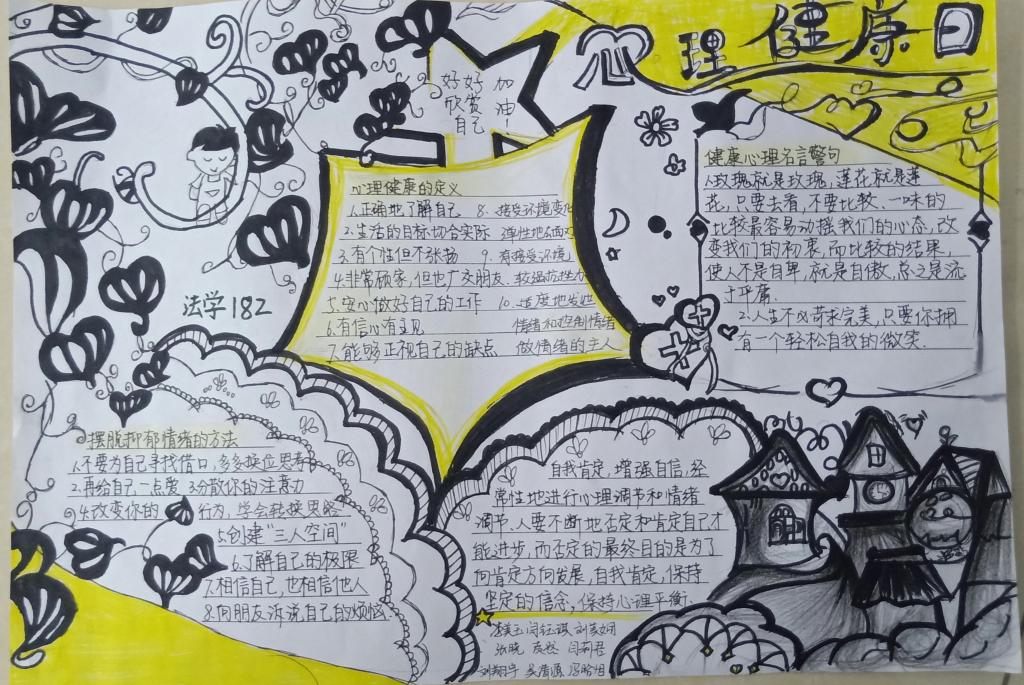 心理健康日
好好 加
欣赏 油
自己 !
心理健康的定义
1.正确地了解自己 8.接受环境变化
2.生活的目标切合实际 弹性地面对
3.有个性但不张扬 9.有接受环境
4.非常顾家,但也广交朋友. 较强抗挫力
5.安心做好自己的工作 10.适度地发泄
6.有信心有主见 情绪和控制情绪
7.能够正视自己的缺点 做情绪的主人
健康心理名言警句
1.玫瑰就是玫瑰,莲花就是莲
花,只要去看,不要比较、一味的
比较最容易动摇我们的心态,改
变我们的初衷,而比较的结果,
使人不是自卑,就是自傲,总之是流
于平庸.
2.人生不必苛求完美,只要你拥
有一个轻松自我的微笑.
法学182
摆脱抑郁情绪的方法
1.不要为自己寻找借口,多多换位思考
2.再给自己一点爱 3.分散你的注意力
4.改变你的 行为,学会转换思路
5.创建“三人空间”
6.了解自己的极限
7.相信自己,也相信他人
8.向朋友诉说自己的烦恼.
自我肯定,增强自信,经
常性地进行心理调节和情绪
调节.人要不断地否定和肯定自己才
能进步,而否定的最终目的是为了
向肯定方向发展,自我肯定,保持
坚定的信念,保持心理平衡.